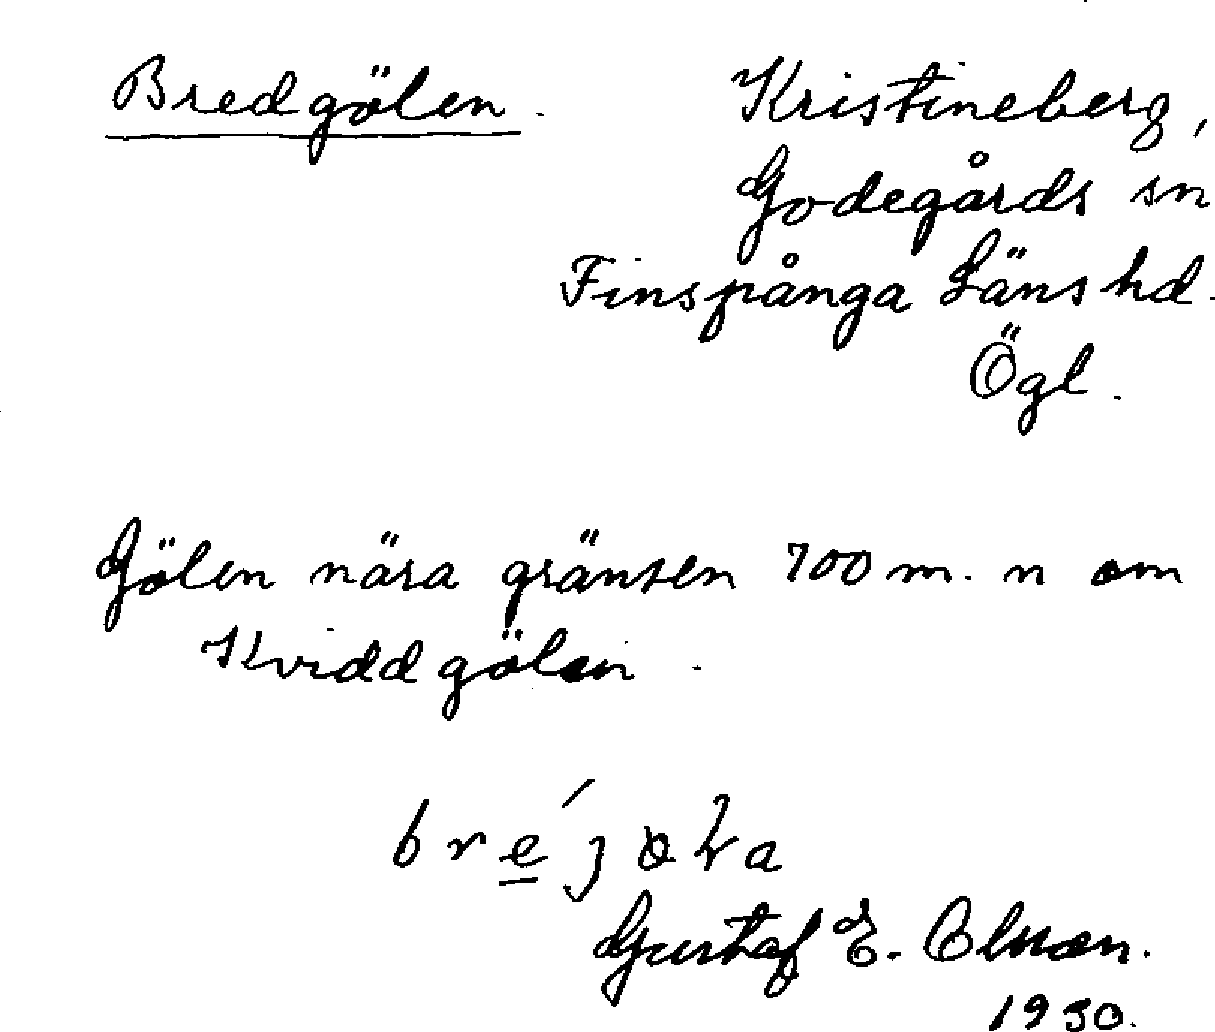 Bredgölen.
Kristineberg,
Godegårds sn
Finspånga Läns hd.
Ögl.
Gölen nära gränsen 700 m. n om
Kviddgölen.
Gustaf E. Olsson.
1930.